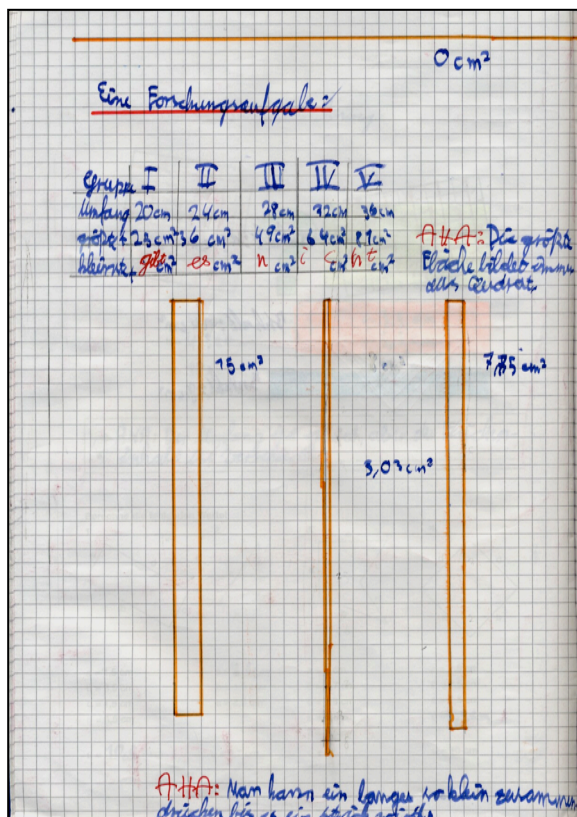 0 cm²
Eine Forschungsaufgabe:
Gruppe I II III IV V
Umfang 20cm 24cm 28cm 32cm 36cm
größte F 25 cm² 36 cm² 49 cm² 64 cm² 81 cm²
kleinste F gibt cm² es cm² n cm² i c cm² ht cm²
AHA: Die größte
Fläche bildet immer
das Quadrat
15 cm²
7,85 cm²
3,03 cm²
AHA: Man kann ein langes so klein zusammen
drücken bis es ein Strich